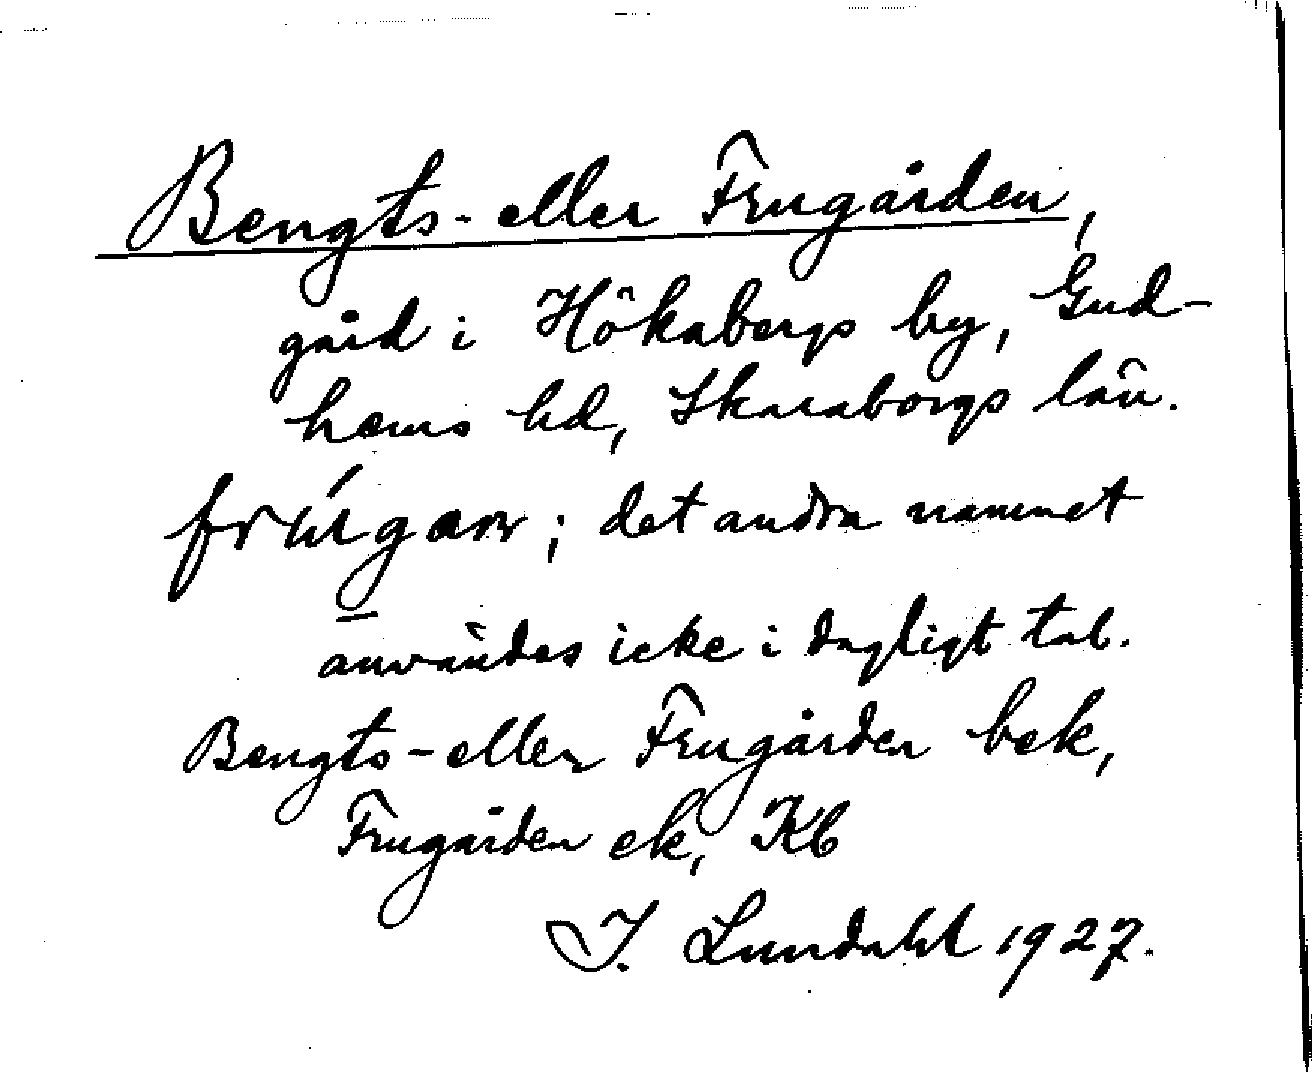 Bengts- eller Frugården,
gård i Hökabergs by, Gud-
hems hd, Skaraborgs län.
det andra namnet
användes icke i dagligt tal.
Bengts- eller Frugården bek,
Frugården ek, Kb
I. Lundahl 1927.